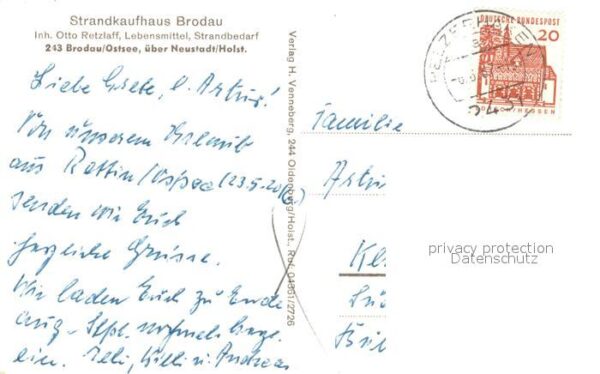 Strandkaufhaus Brodau
Inh. Otto Retzlaff, Lebensmittel, Strandbedarf
243 Brodau/Ostsee, über Neustadt/Holst.
Liebe Grete, l. Artur!
Von unserem Urlaub
aus Rettin/Ostsee (23.5.-20.6.)
senden wir Euch
herzliche Grüsse.
Wir laden Euch zu Ende
Aug.-Sept. nochmals
ein. Willi u. Andreas
Verlag H. Venneberg, 244 Oldenburg/Holst., Ruf 04361/2726
DEUTSCHE BUNDESPOST
20
PELZERHAKEN
Familie
Artu
Kl
privacy protection
Datenschutz